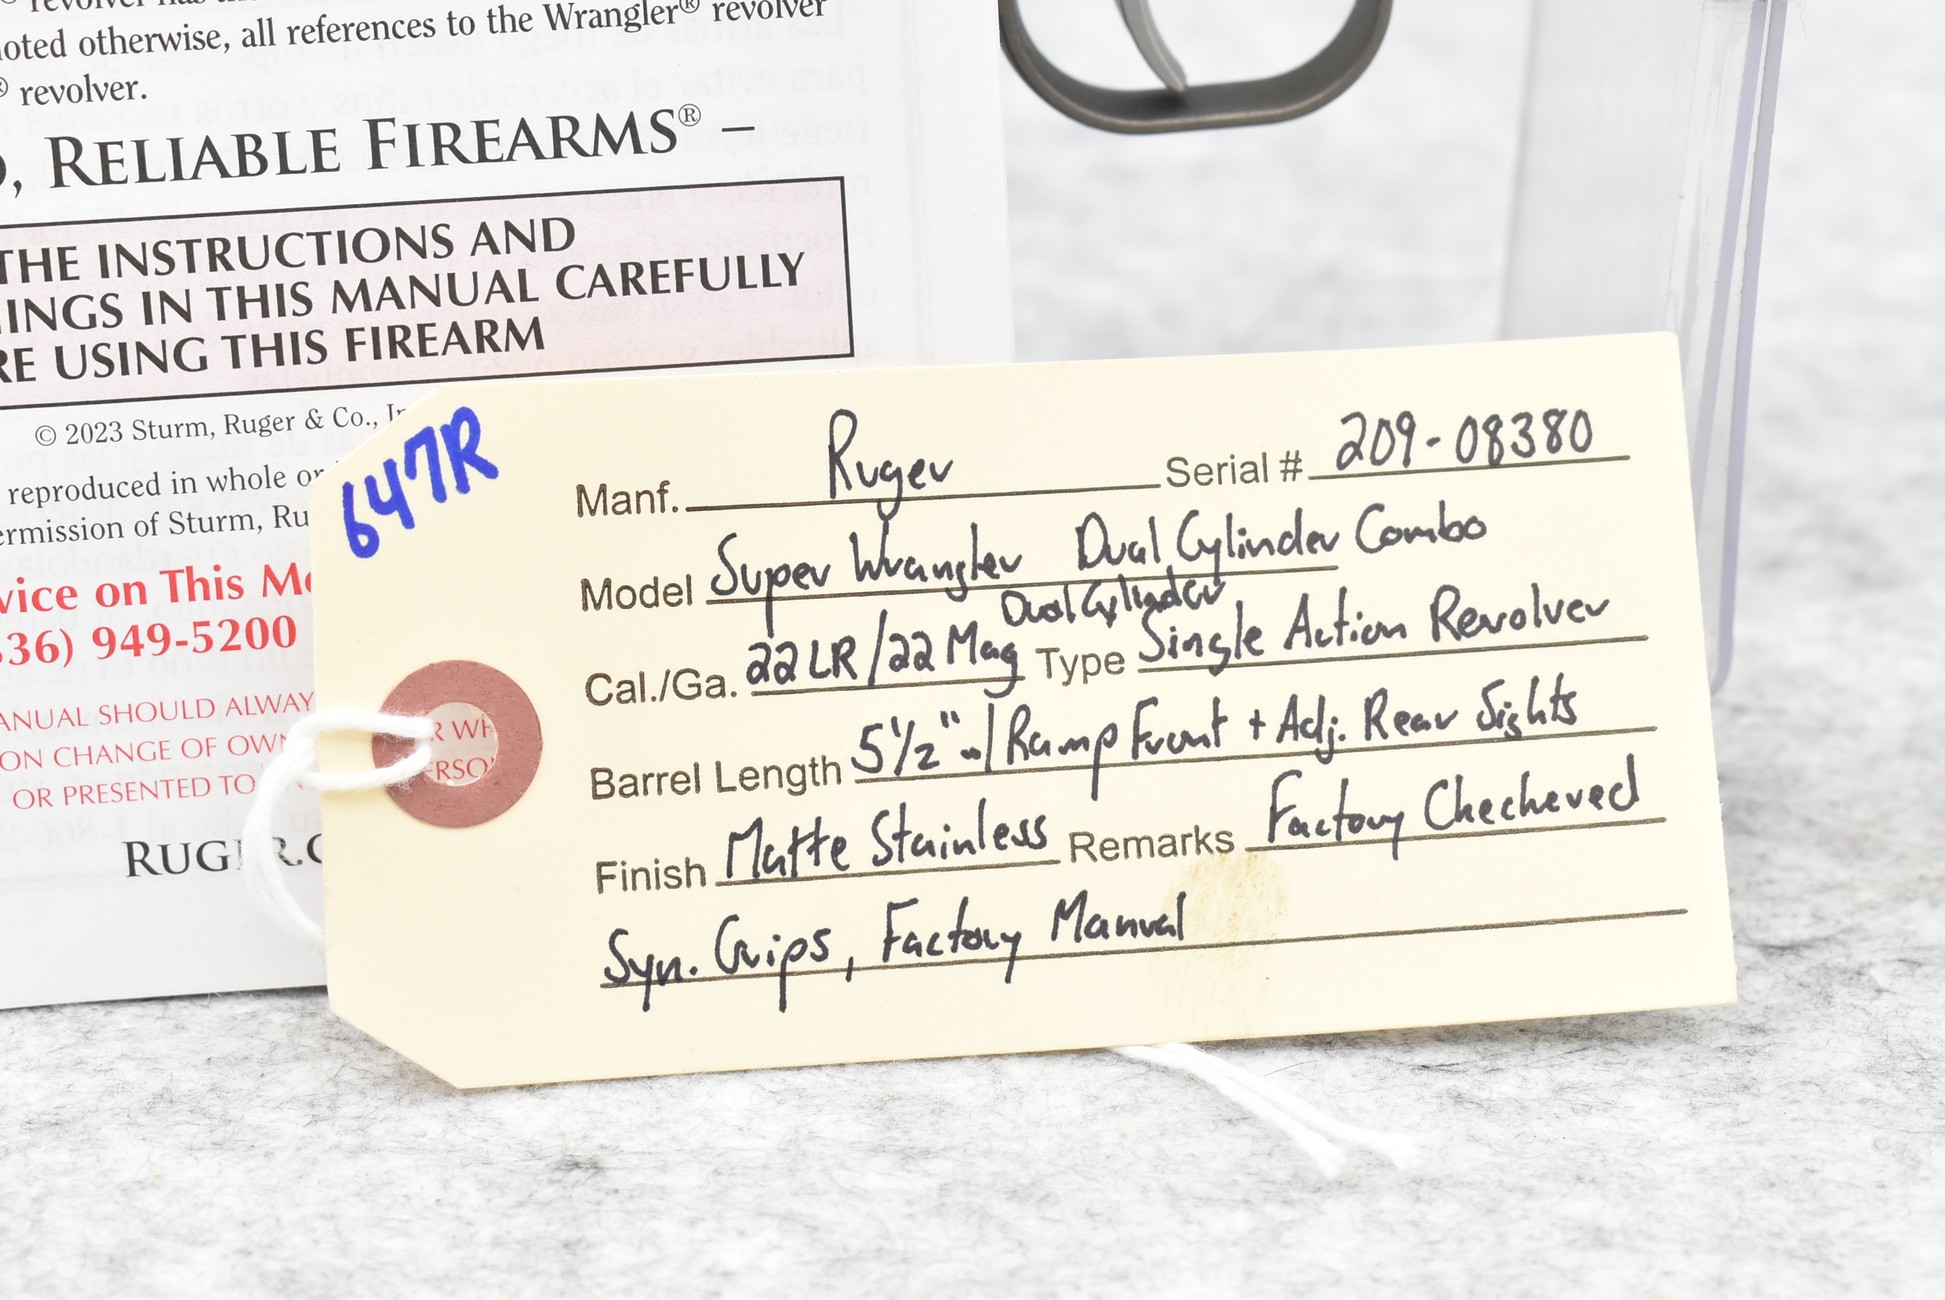 revolver
noted otherwise, all references to the Wrangler® revolver
® revolver.
, RELIABLE FIREARMS® –
THE INSTRUCTIONS AND
INGS IN THIS MANUAL CAREFULLY
RE USING THIS FIREARM
© 2023 Sturm, Ruger & Co., In
reproduced in whole or
ermission of Sturm, Ru
vice on This Mo
36) 949-5200
ANUAL SHOULD ALWAY
ON CHANGE OF OWN
OR PRESENTED TO
R WH
ERSO
RUGER.C
647R
Manf. Ruger Serial # 209-08380
Model Super Wrangler Dual Cylinder Combo
Dual Cylinder
Cal./Ga. 22 LR/22 Mag Type Single Action Revolver
Barrel Length 5½" w/ Ramp Front + Adj. Rear Sights
Finish Matte Stainless Remarks Factory Checkered
Syn. Grips, Factory Manual